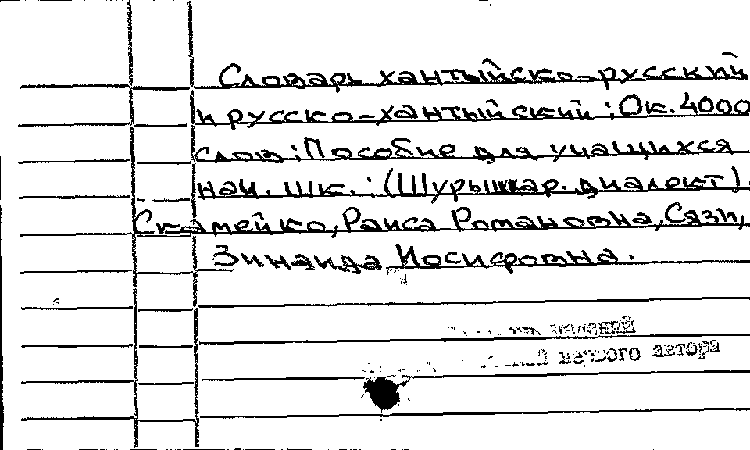 Словарь хантыйско-русский
и русско-хантыйский : Ок. 4000
слов : Пособие для учащихся
нач. шк. : (Шурышкар. диалект).
Скамейко, Раиса Романовна, Сязи,
Зинаида Иосифовна.
первого автора